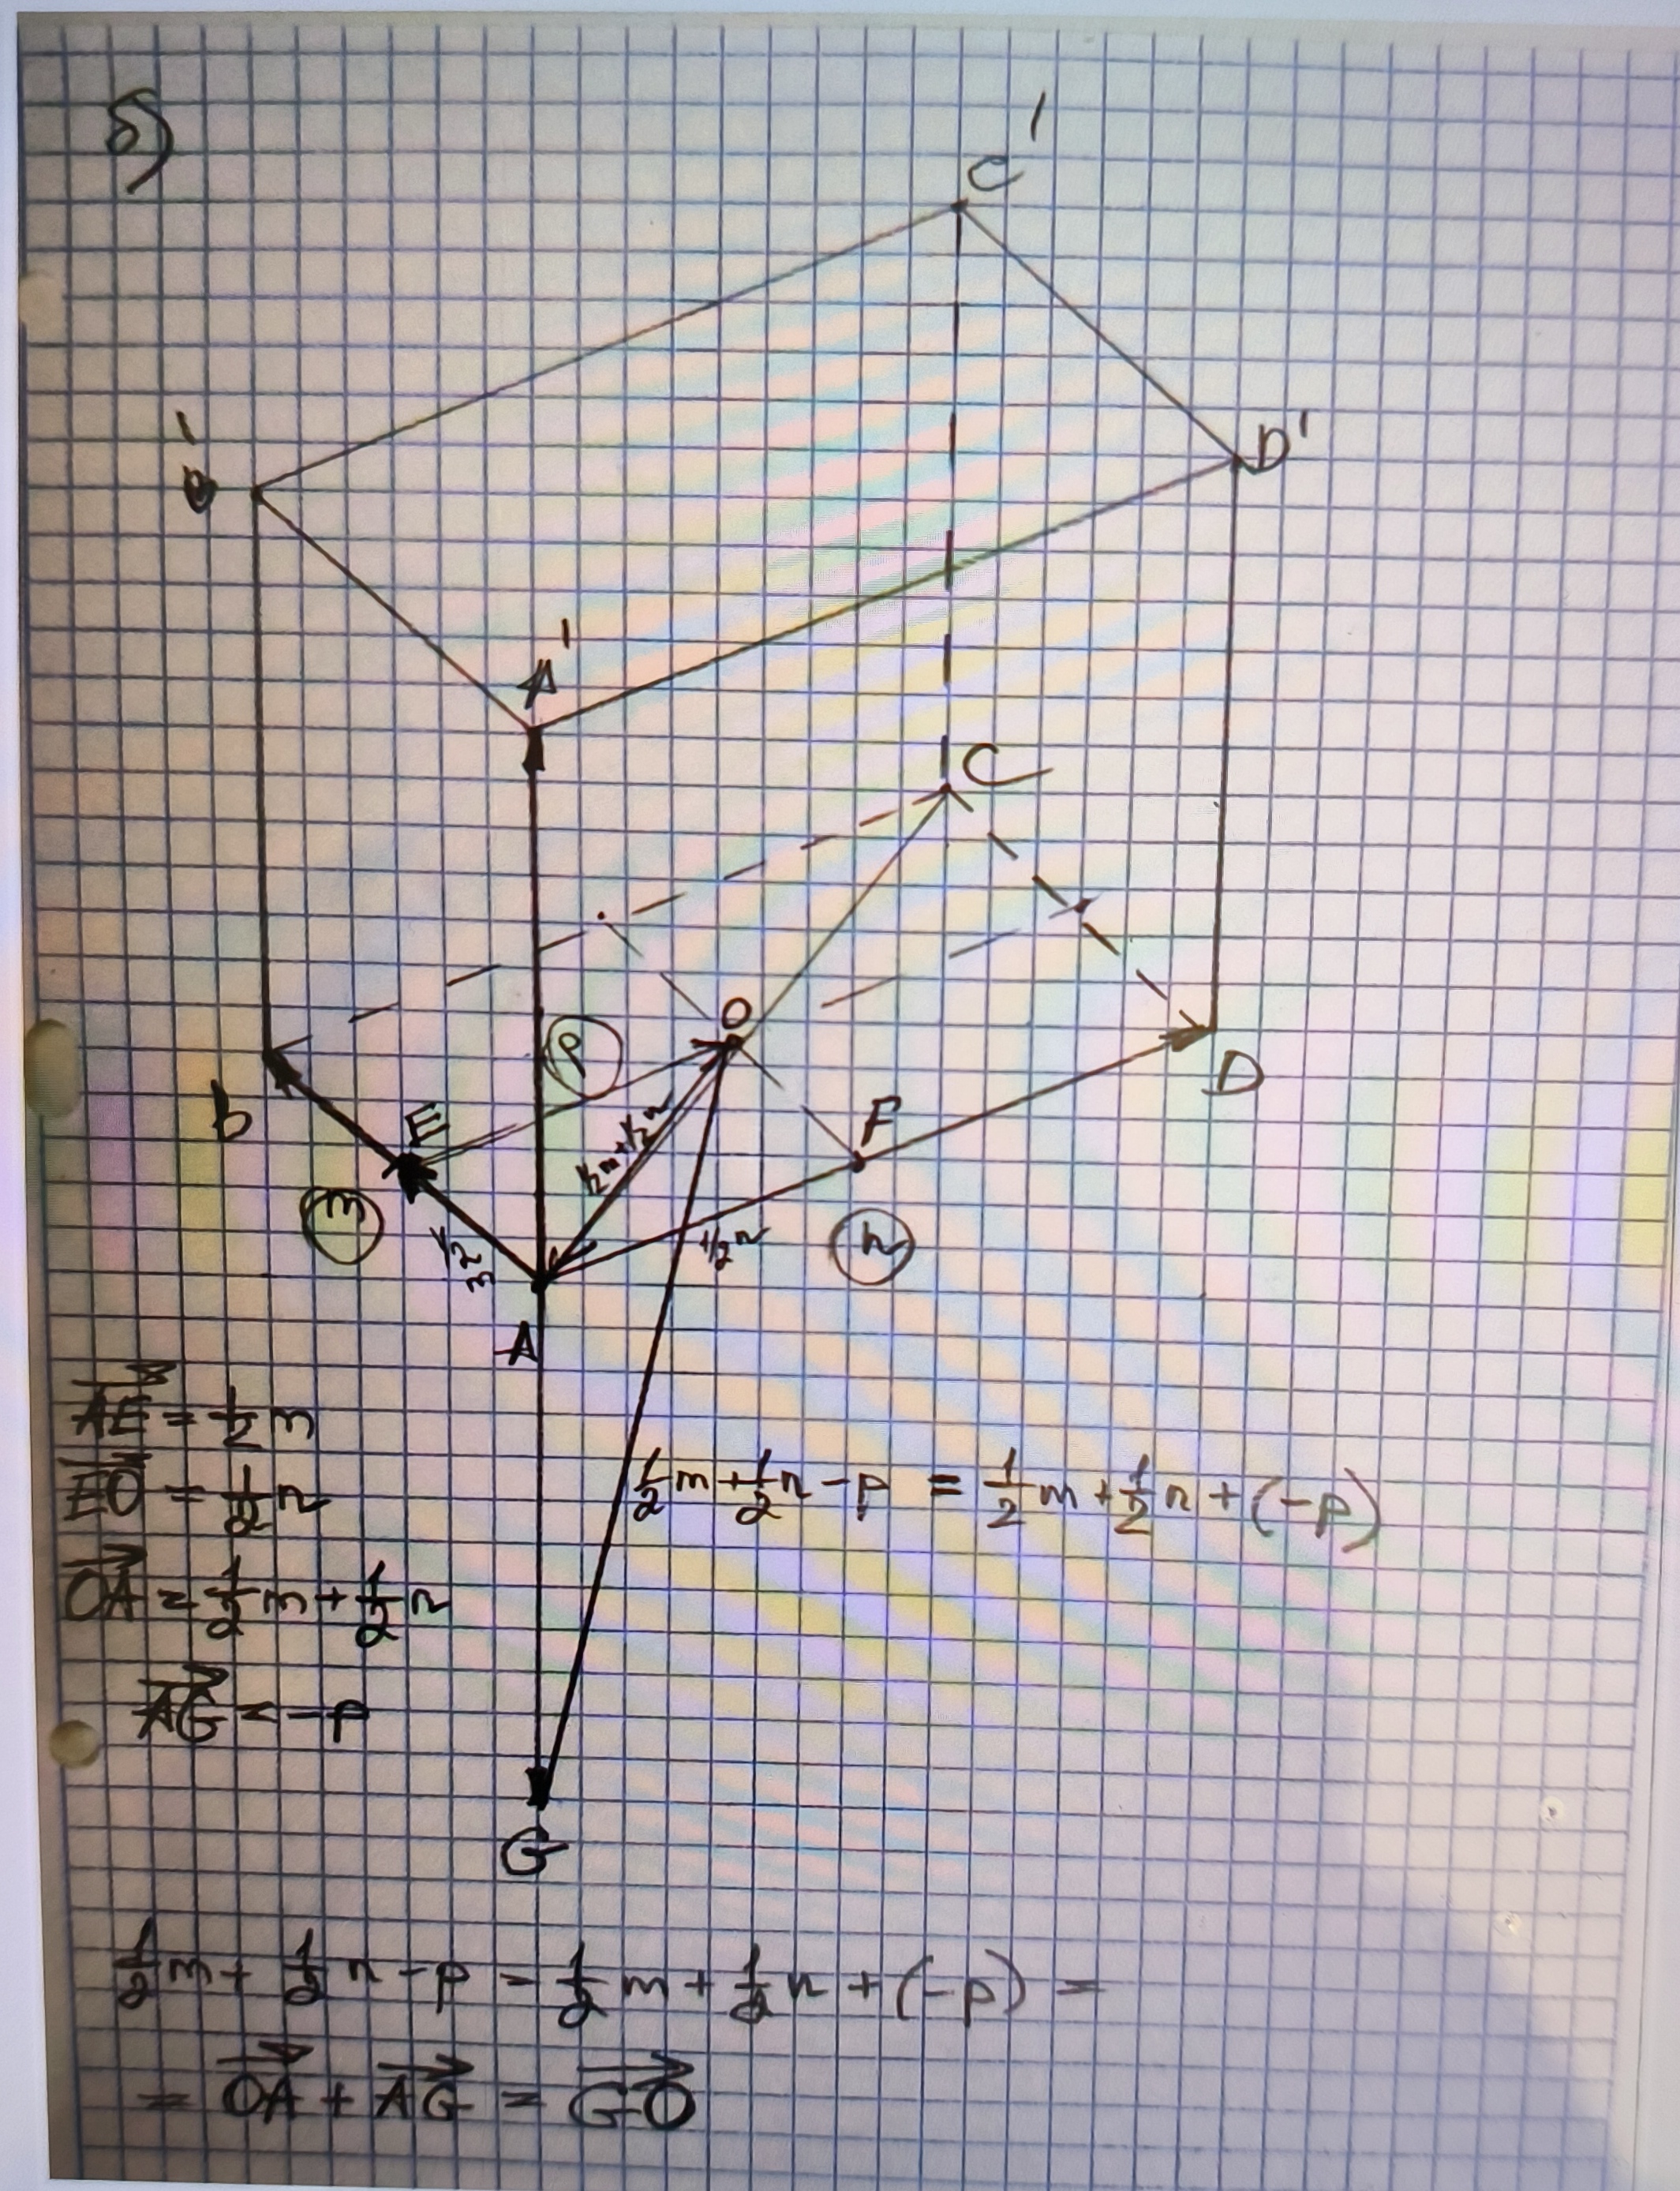 б)
C'
B'
D'
A'
C
O
p
B
E
F
D
m
1/2 m
1/2 m+1/2 n
1/2 n
n
A
AE = 1/2 m
EO = 1/2 n
1/2 m + 1/2 n - p = 1/2 m + 1/2 n + (-p)
OA = 1/2 m + 1/2 n
AG = -p
G
1/2 m + 1/2 n - p = 1/2 m + 1/2 n + (-p) =
= OA + AG = GO